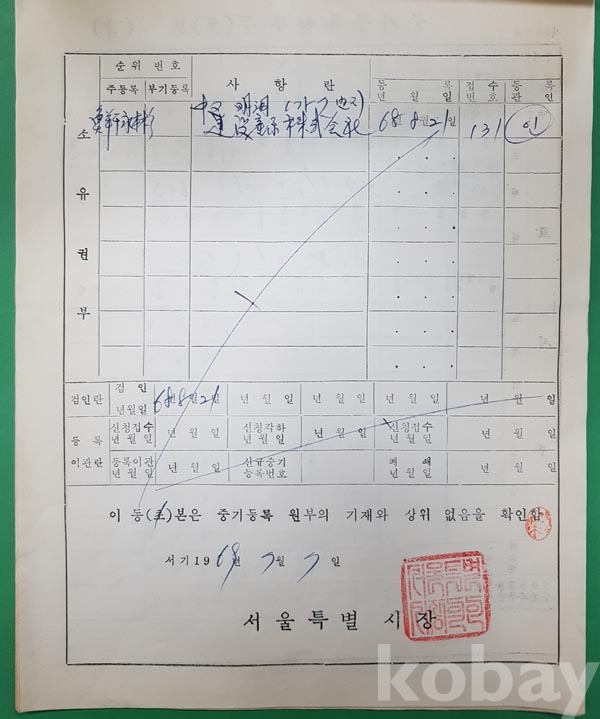 순위 번호
주등록 부기등록 사 항 란 등 록 년 월 일 접수 번호 등록 관인
中区
建設 株式会社 68 8 21일 131 인
소
유
권
부
검인란 검 인 년월일 68년 8월 21 년 월 일 년 월 일 년 월 일 년 월 일
등 록 신청접수 년 월 일 년 월 일 신청각하 년 월 일 년 월 일 신청접수 년 월 일 년 월 일
이관란 등록이관 년 월 일 년 월 일 신규중기 등록번호 폐 쇄 년 월 일 년 월 일
이 등(초)본은 중기등록 원부의 기재와 상위 없음을 확인함
서기 19 69년 7월 7일
서울특별 시장
kobay